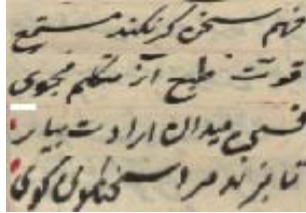 فهم سخن گر نکند مستمع
قوت طبع از متکلم مجوی
فسحت میدان ارادت بیار
تا بزند مرد سخنگوی گوی